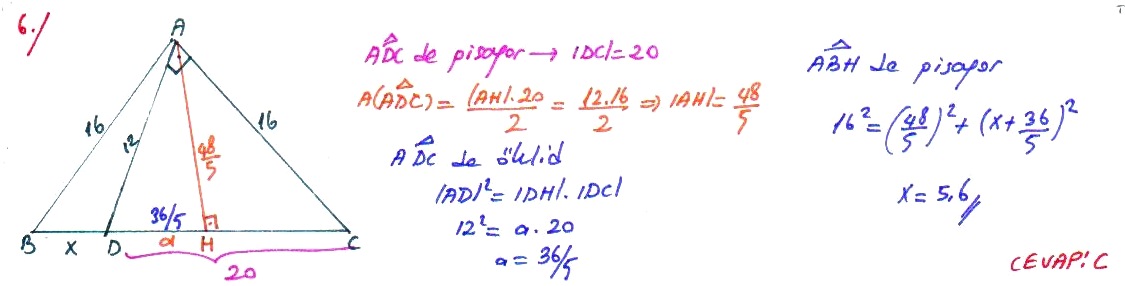 6./
A
16
12
48/5
16
36/5
B x D a H C
20
ADC de pisagor → |DC|=20
A(ADC) = |AH|.20/2 = 12.16/2 ⇒ |AH|= 48/5
ADC de öklid
|AD|² = |DH|.|DC|
12² = a.20
a = 36/5
ABH de pisagor
16² = (48/5)² + (x+36/5)²
x = 5,6
CEVAP: C